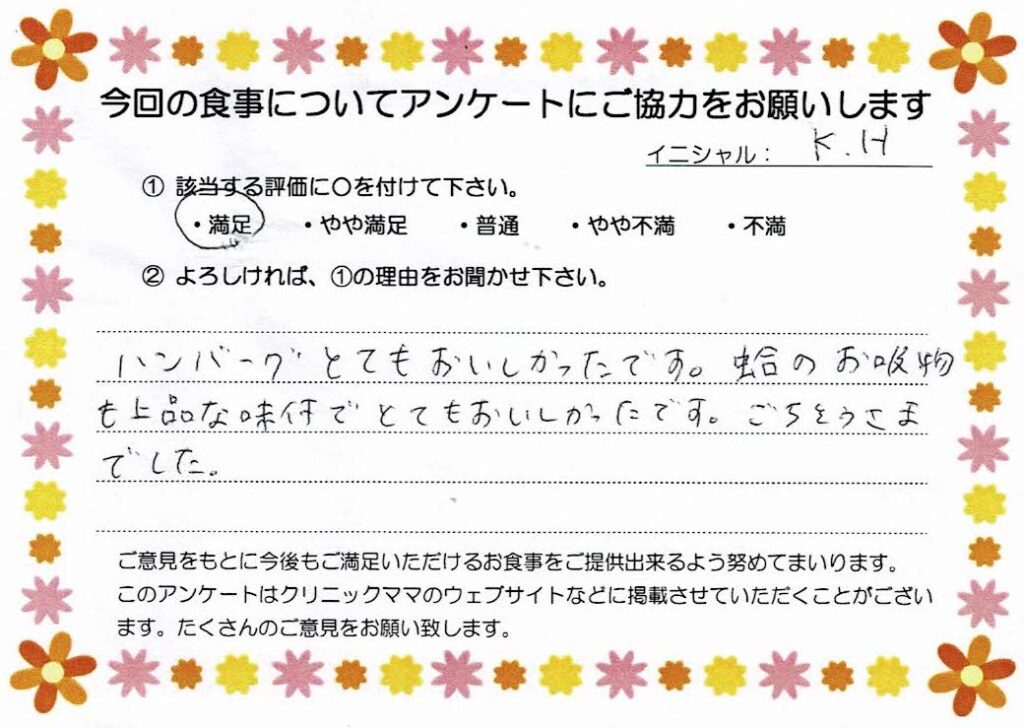 今回の食事についてアンケートにご協力をお願いします
イニシャル： K.H
① 該当する評価に〇を付けて下さい。
・満足 ・やや満足 ・普通 ・やや不満 ・不満
② よろしければ、①の理由をお聞かせ下さい。
ハンバーグとてもおいしかったです。蛤のお吸物
も上品な味付でとてもおいしかったです。ごちそうさま
でした。
ご意見をもとに今後もご満足いただけるお食事をご提供出来るよう努めてまいります。
このアンケートはクリニックママのウェブサイトなどに掲載させていただくことがござい
ます。たくさんのご意見をお願い致します。